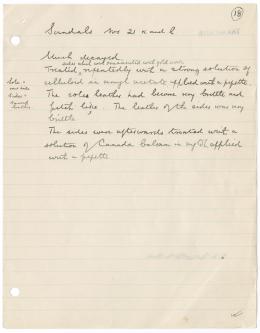 18
Sandals Nos 21 K and l
Much decayed
sides and ornamented with gold work
Treated, repeatedly with a strong solution of
celluloid in amyl acetate applied with a pipette.
Sole =
Sides =
leather
The soles leather had become very brittle and
pitch like. The leather of the sides was very
brittle
The sides were afterwards treated with a
solution of Canada Balsam in xylol applied
with a pipette